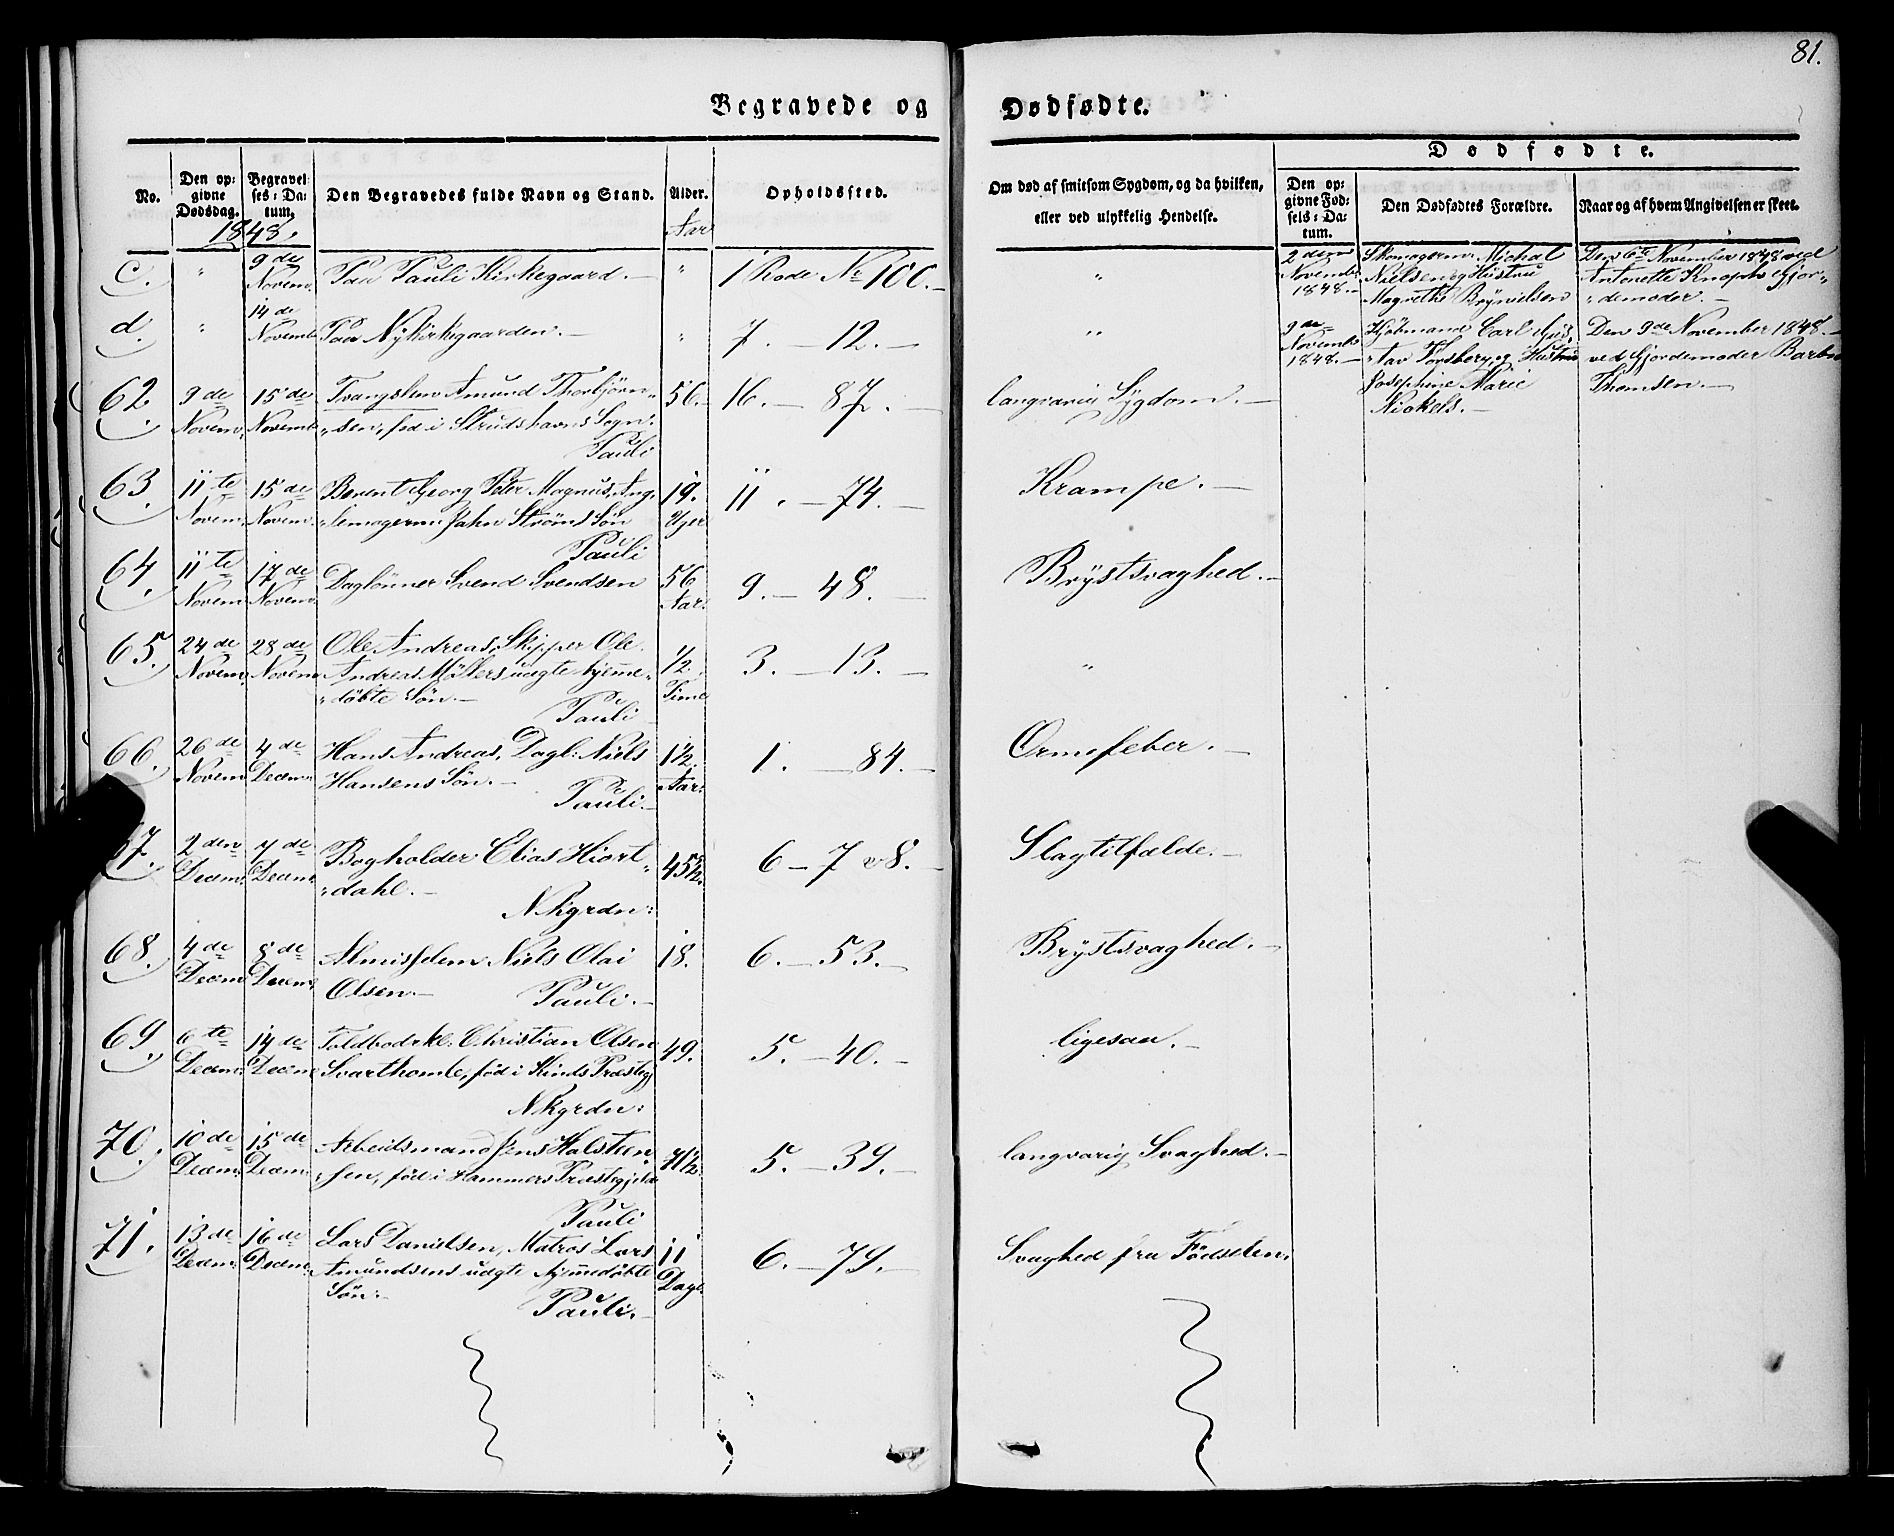 81.
Begravede og Dødfødte.
No.
Den opgivne Dødsdag.
Begravelses-Datum.
Den Begravedes fulde Navn og Stand.
Alder.
Opholdssted.
Om død af smitsom Sygdom, og da hvilken,
eller ved ulykkelig Hendelse.
Dødfødte.
Den opgivne Fødsels-Datum.
Den Dødfødtes Forældre.
Naar og af hvem Angivelsen er skeet.
1848.
Aar
c. " 9de Novem. Paa Pauli Kirkegaard. " 1 Rode No 100. "
2den Novemb. 1848.
Skomagersv. Michal
Nielsen og Hustru
Magrethe Brynielsen
Den 6te November 1848 ved
Antonette Knoph Gjor-
demoder.
d. " 14de Novemb. Paa Nykirkegaarden. " 7. 12. "
9de Novemb. 1848.
Kjøbmand Carl Gus-
tav Forsberg og Hustru
Josephine Marie
Nickels.
Den 9de November 1848.
ved Gjordemoder Barbra
Thomsen.
62. 9de Novem. 15de Novemb. Tvangslem Amund Thorbjørn-
sen, fød i Strudshavns Sogn.
Pauli
56. 16. 87. langvarig Sygdom.
63. 11te Novem. 15de Novem. Berent Georg Peter Magnus, Ang-
lemagersv. Jahn Strøms Søn
Pauli
19. Uger 11. 74. Krampe.
64. 11te Novem. 17de Novem. Daglønner Svend Svendsen
56 Aar. 9. 48. Brystsvaghed.
65. 24de Novem. 28de Novem. Ole Andreas, Skipper Ole
Andreas Møllers uægte hjemme-
døbte Søn.
Pauli
1/2 Time 3. 13. "
66. 26de Novem. 4de Decem. Hans Andreas, Dagl: Niels
Hansens Søn.
Pauli.
1 1/2. Aar. 1. 84. Ormefeber.
67. 2den Decem. 7de Decem. Bogholder Elias Hiort-
dahl.
Nkgrdn:
45 1/2. 6 7 & 8. Slagtilfælde.
68. 4de Decem. 8de Decem. Almislem Niels Olai
Olsen. Pauli.
18. 6. 53. Brystsvaghed.
69. 6te Decem. 14de Decem. Toldbodrkl. Christian Olsen
Svarthomle, fød i Kinds Præsteg.
Nkgrdn:
49. 5. 40. ligesaa.
70. 10de Decem. 15de Decem. Arbeidsmand Jens Halsteen-
sen, fød i Hammers Præstegjeld
Pauli
71 1/2. 5. 39. langvarig Svaghed.
71. 13de Decem. 16de Decem. Lars Danielsen, Matros Lars
Amundsens uægte hjemmedøbte
Søn.
Pauli.
11 Dage 6. 79. Svaghed fra Fødselen.